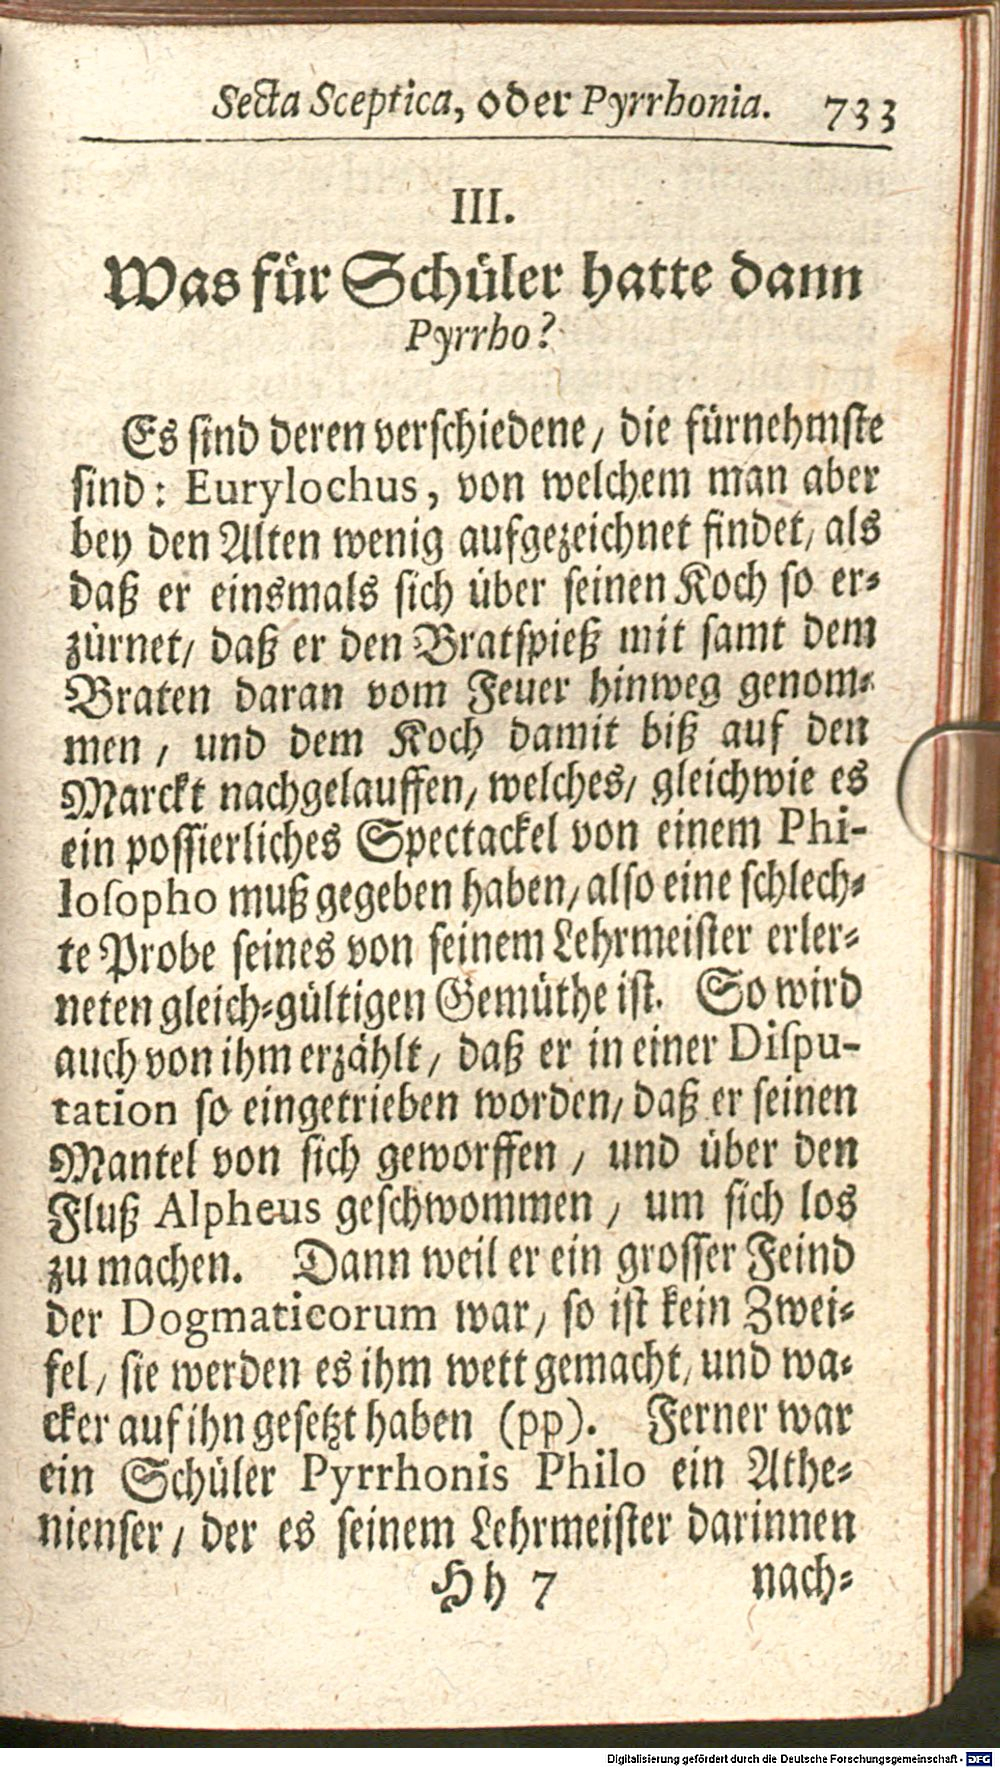 Secta Sceptica, oder Pyrrhonia. 733
III.
Was für Schüler hatte dann
Pyrrho?
Es sind deren verschiedene, die fürnehmste
sind: Eurylochus, von welchem man aber
bey den Alten wenig aufgezeichnet findet, als
daß er einsmals sich über seinen Koch so er-
zürnet, daß er den Bratspieß mit samt dem
Braten daran vom Feuer hinweg genom-
men, und dem Koch damit biß auf den
Marckt nachgelauffen, welches, gleichwie es
ein possierliches Spectackel von einem Phi-
losopho muß gegeben haben, also eine schlech-
te Probe seines von seinem Lehrmeister erler-
neten gleich-gültigen Gemüthe ist. So wird
auch von ihm erzählt, daß er in einer Dispu-
tation so eingetrieben worden, daß er seinen
Mantel von sich geworffen, und über den
Fluß Alpheus geschwommen, um sich los
zu machen. Dann weil er ein grosser Feind
der Dogmaticorum war, so ist kein Zwei-
fel, sie werden es ihm wett gemacht, und wa-
cker auf ihn gesetzt haben (pp). Ferner war
ein Schüler Pyrrhonis Philo ein Athe-
nienser, der es seinem Lehrmeister darinnen
Hh 7 nach-
Digitalisierung gefördert durch die Deutsche Forschungsgemeinschaft - DFG